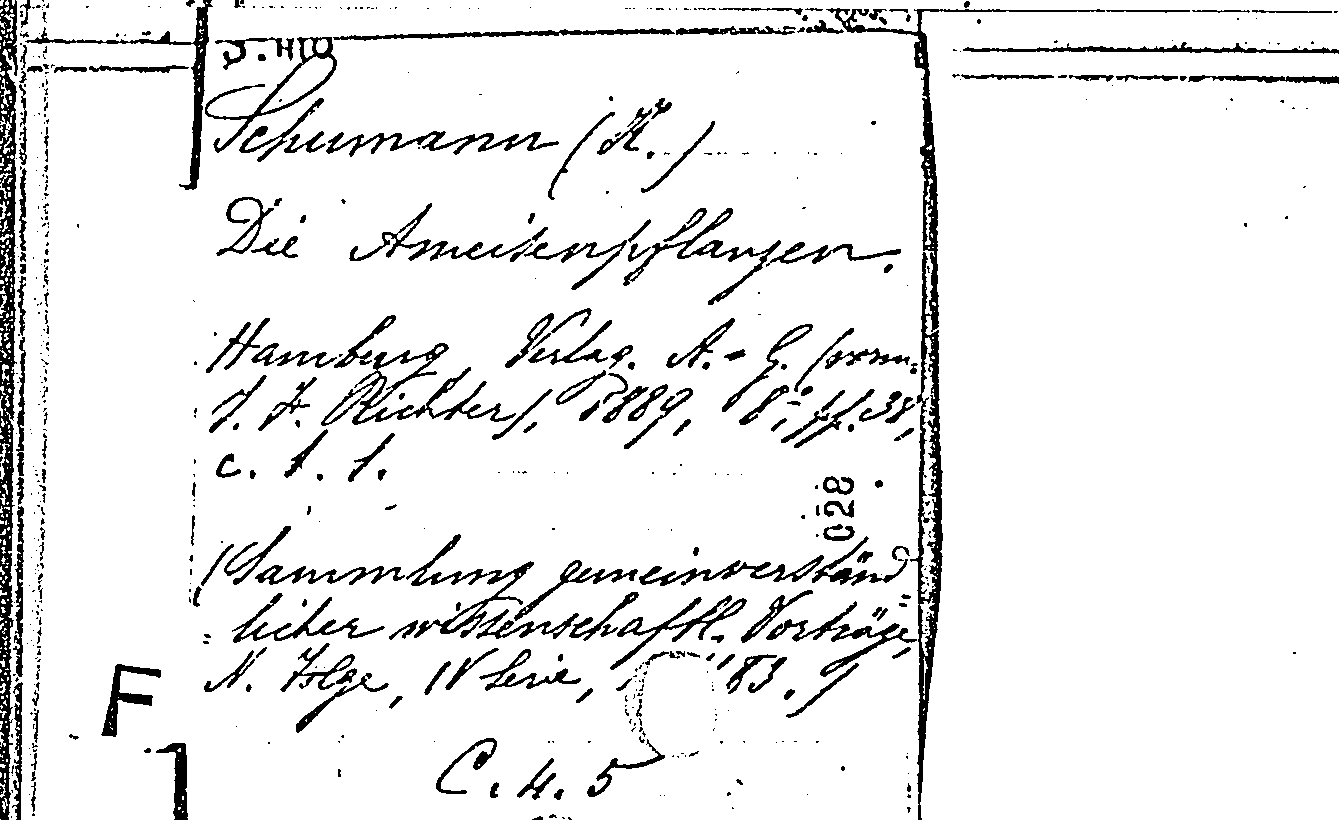 Schumann (K.)
Die Ameisenpflanzen.
Hamburg, Verlag. A.-G. (vorm.
J. F. Richter), 1889, 8º, pp. 38,
c. t. 1.
028
(Sammlung gemeinverständ
=licher wissenschaftl. Vorträge,
N. Folge, IV Serie, 83.)
F
C. 4. 5